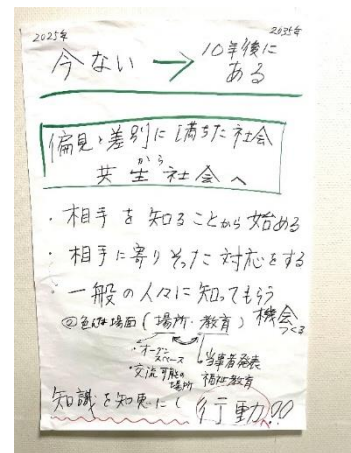 2025年 2035年
今ない → 10年後に
ある
偏見・差別に満ちた社会
から
共生社会へ
・相手を知ることから始める
・相手に寄りそった対応をする
・一般の人々に知ってもらう
機会
つくる
場面(場所・教育)
・オープン
スペース
・交流可能の
場所
当事者発表
福祉教育
知識を知恵に!行動!!